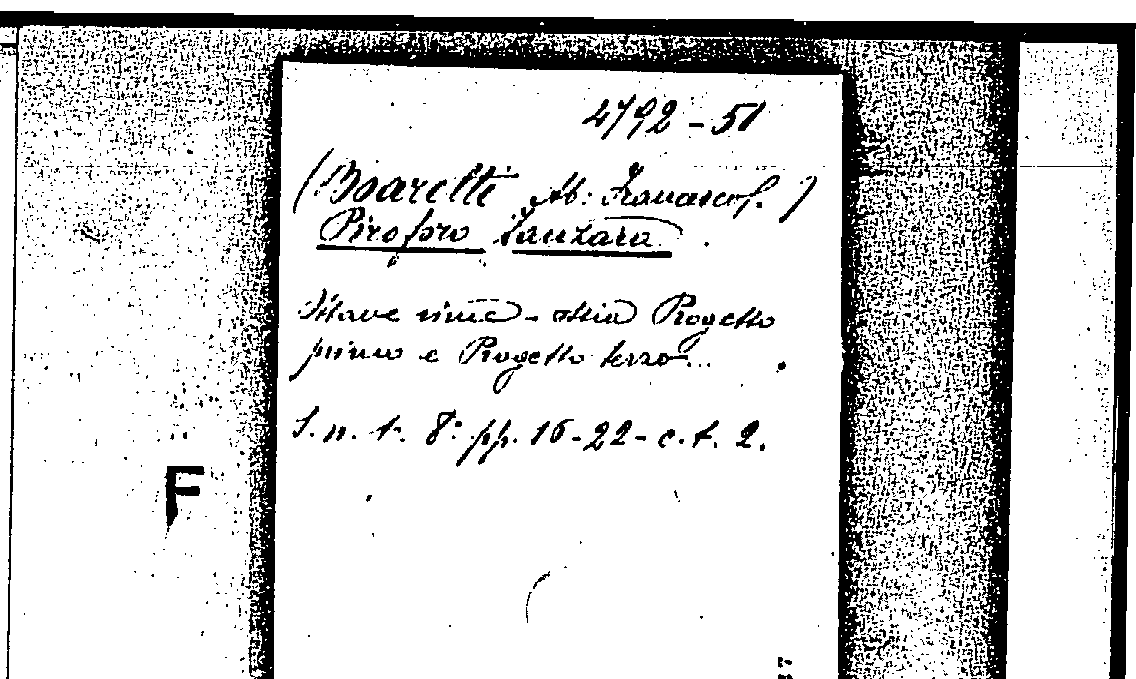 4792-51
(Boaretti Ab: Francesco f. )
Piroforo Zanzara.
Ottave rime - ossia Progetto
primo e Progetto terzo...
S. n. t. 8° pp. 16-22- c. t. 2.
F